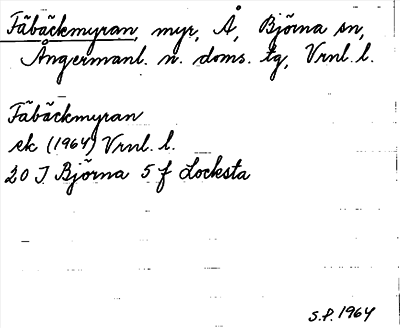 Fäbäckmyran, myr, Å, Björna sn,
Ångermanl. n. doms. tg, Vrnl. l.
Fäbäckmyran
ek (1964) Vrnl. l.
20 J Björna 5 f Locksta
S.P. 1964